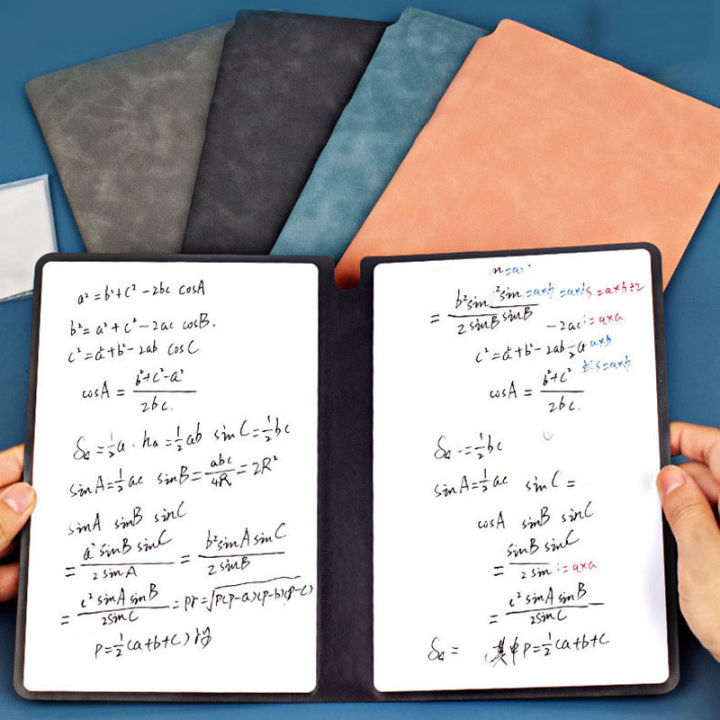 a² = b²+c² -2bc cosA
b² = a²+c² -2ac cosB.
c² = a²+b² -2ab cosC
cosA = (b²+c²-a²)/(2bc.)
S△ = ½a·ha = ½ab sinC = ½bc
sinA = ½ac sinB = abc/4R = 2R²
sinA sinB sinC
= (a² sinB sinC)/(2 sinA) = (b² sinA sinC)/(2 sinB)
= (c² sinA sinB)/(2sinC) = pr = √p(p-a)(p-b)(p-c)
P = ½(a+b+c)
= (b² sin² sin)/(2 sinB sinB) =a×h =a×h S=a×h÷2
-2ac =a×a
c² = a²+b² -2ab ½a a×h
S=a×h
cosA = (b²+c²)/(2bc.)
S△ -=½bc
sinA = ½ac sinC =
cosA sinB sinC
= (sinB sinC)/(2 sin) =a×a
= (c² sinA sinB)/(2sinC)
S△ = (其中P=½(a+b+c